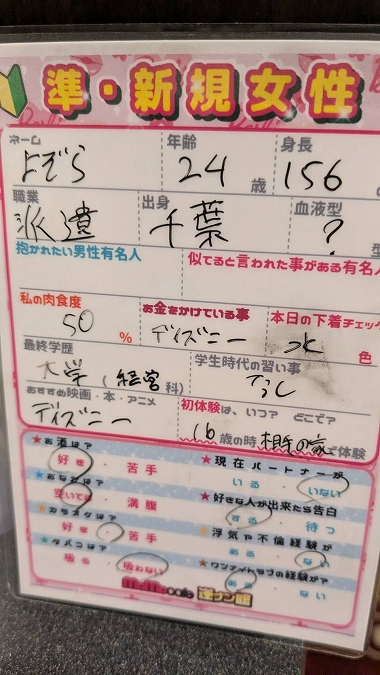 準・新規女性
ネーム 年齢 身長
よぞら 24歳 156
職業 出身 血液型
派遣 千葉 ?型
抱かれたい男性有名人 似てると言われた事がある有名人
私の肉食度 お金をかけている事 本日の下着チェック
50% ディズニー 水色
最終学歴 学生時代の習い事
大学(経営科) なし
おすすめ映画・本・アニメ 初体験は、いつ? どこで?
ディズニー 16歳の時相手の家で体験
★お酒は? ★現在パートナーが
好き・苦手 いる・いない
★おなかは? ★好きな人が出来たら告白
空いてる・満腹 する・待つ
★カラオケは? ★浮気や不倫経験が
好き・苦手 ある・ない
★タバコは? ★ワンナイトラブの経験が?
吸う・吸わない ある・ない